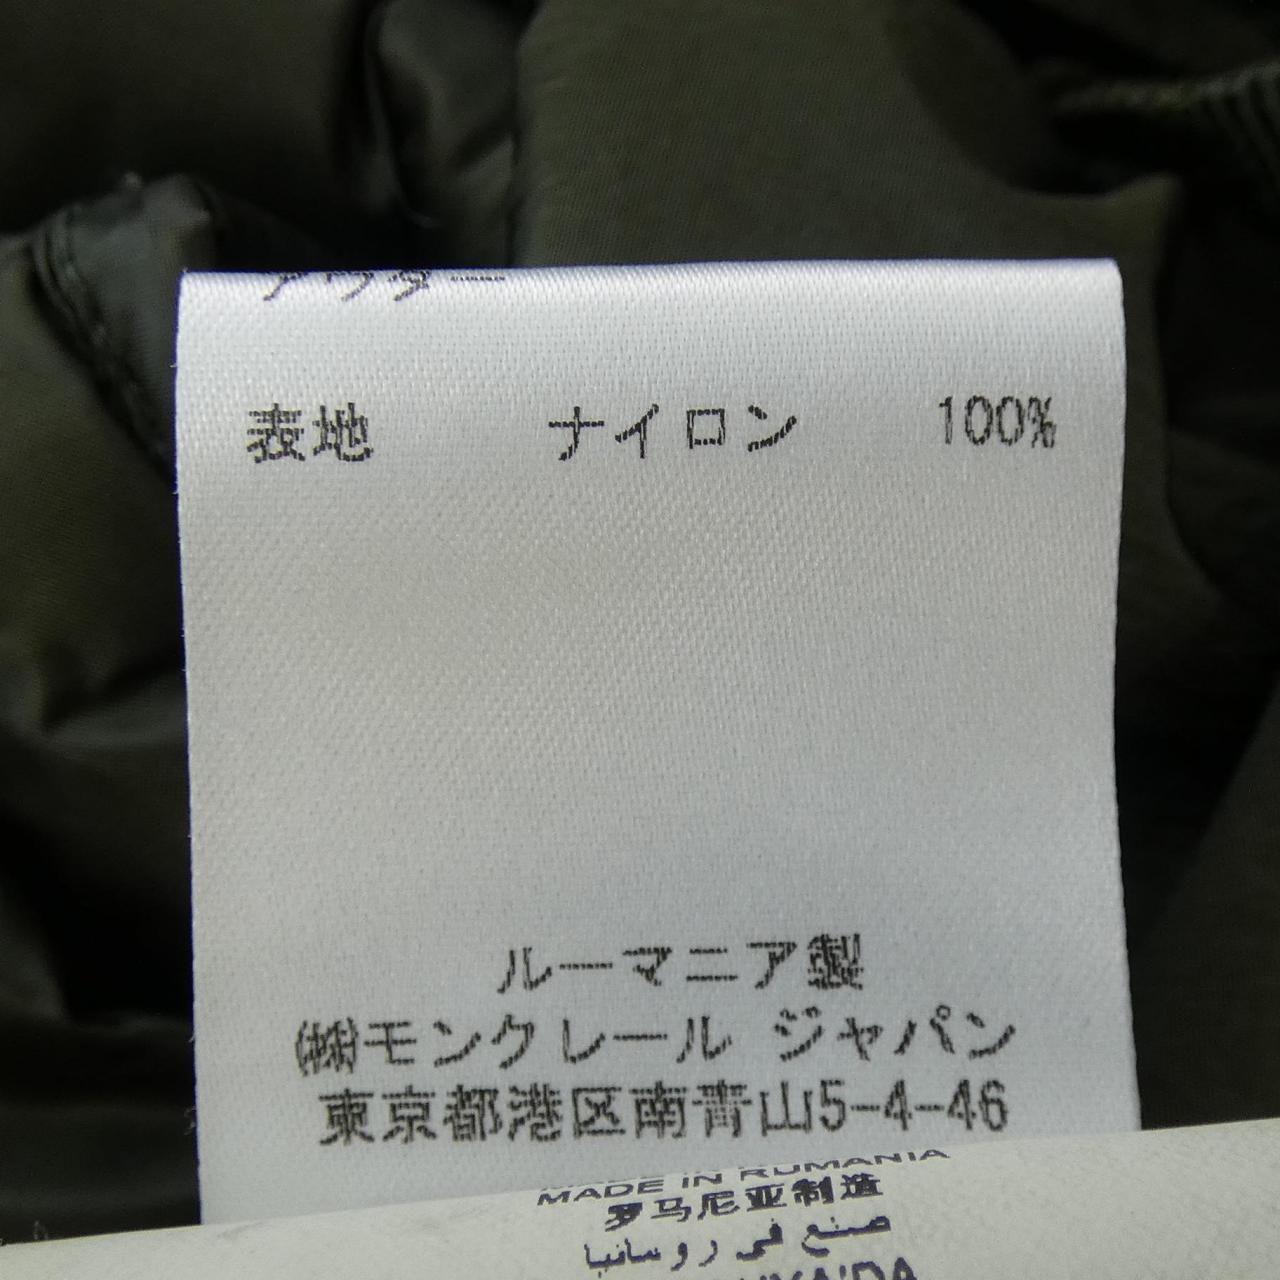 アウター
表地 ナイロン 100%
ルーマニア製
㈱モンクレール ジャパン
東京都港区南青山5-4-46
MADE IN RUMANIA
罗马尼亚制造
صنع في رومانيا